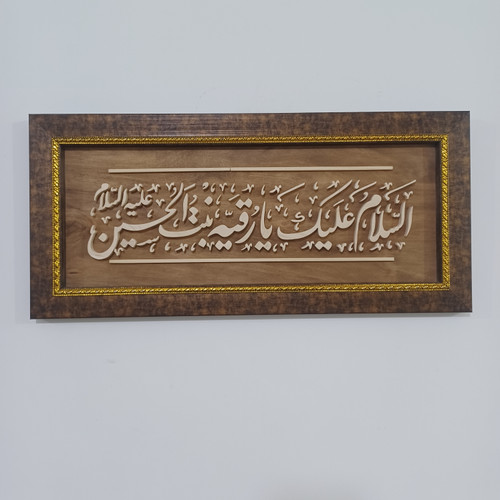 السلام علیک یا رقیه بنت الحسین علیه السلام